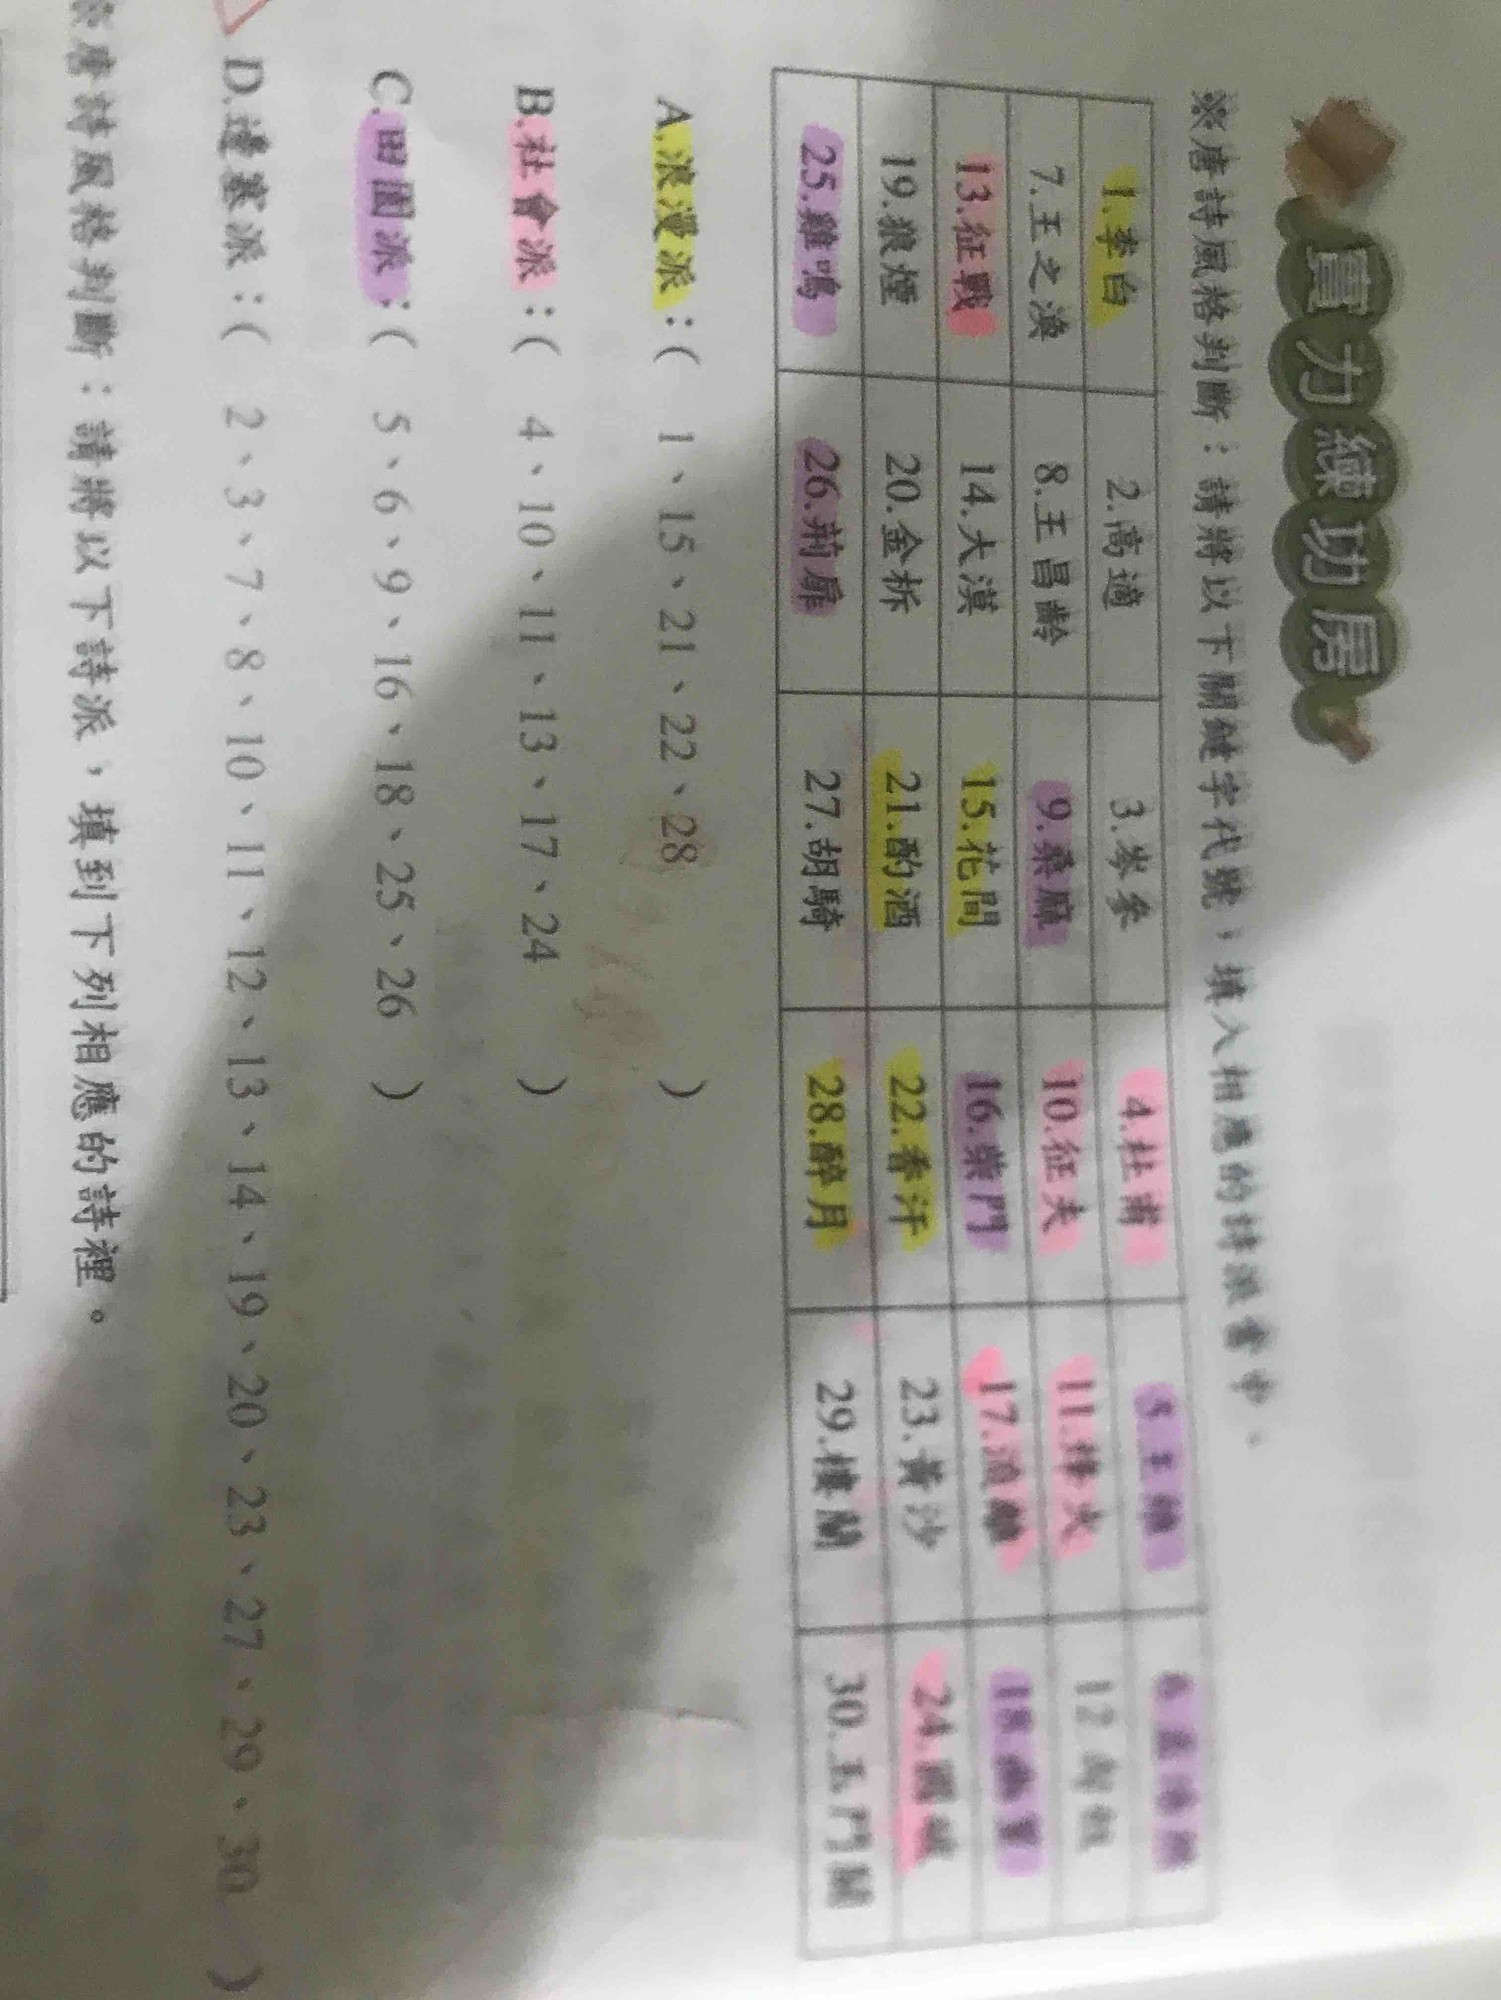 實力練功房
※唐詩風格判斷：請將以下關鍵字代號，填入相應的詩派當中。
1.李白 2.高適 3.岑參 4.杜甫 5.王維 6.孟浩然
7.王之渙 8.王昌齡 9.桑麻 10.征夫 11.烽火 12.
13.征戰 14.大漠 15.花間 16.柴門 17.流離 18.
19.狼煙 20.金柝 21.酌酒 22.香汗 23.黃沙 24.國破
25.雞鳴 26.荊扉 27.胡騎 28.醉月 29.樓蘭 30.玉門關
A.浪漫派：( 1、15、21、22、28 )
B.社會派：( 4、10、11、13、17、24 )
C.田園派：( 5、6、9、16、18、25、26 )
D.邊塞派：( 2、3、7、8、10、11、12、13、14、19、20、23、27、29、30 )
※唐詩風格判斷：請將以下詩派，填到下列相應的詩裡。